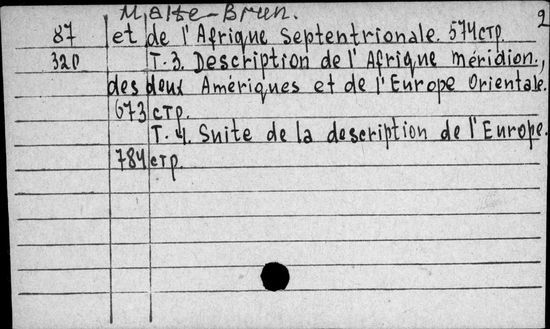 Malte-Brun.
2
87 et de l'Afrique septentrionale. 574 стр.
320 Т. 3. Description de l'Afrique méridion.,
des deux Amériques et de l'Europe Orientale.
673 стр.
Т. 4. Suite de la description de l'Europe.
784 стр.